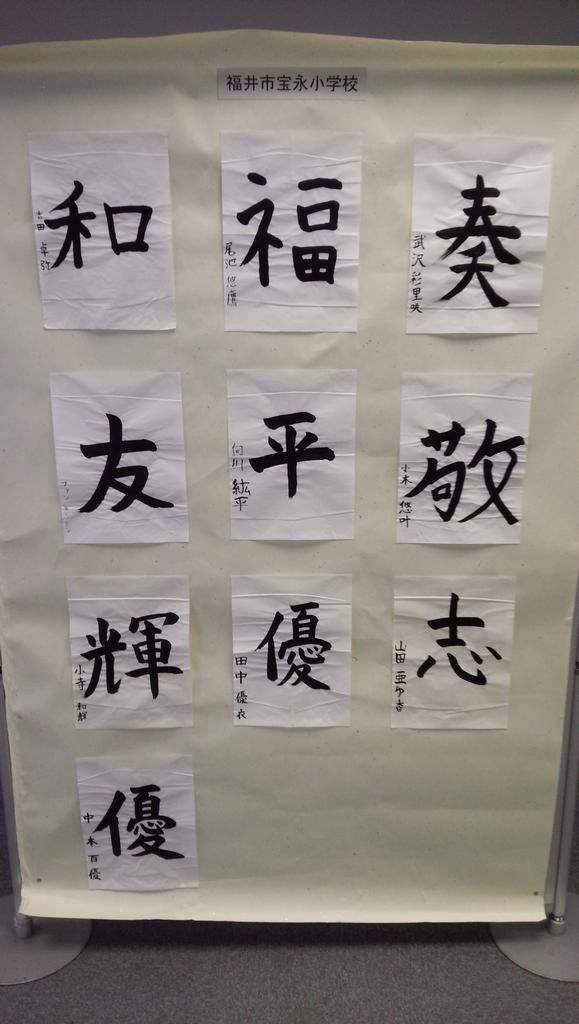 福井市宝永小学校
和
吉田 卓弥
福
尾池 悠鷹
奏
武沢彩里咲
友
平
向川 紘平
敬
小木 悠叶
輝
小寺 和輝
優
田中優衣
志
山田 亜中香
優
中本百優